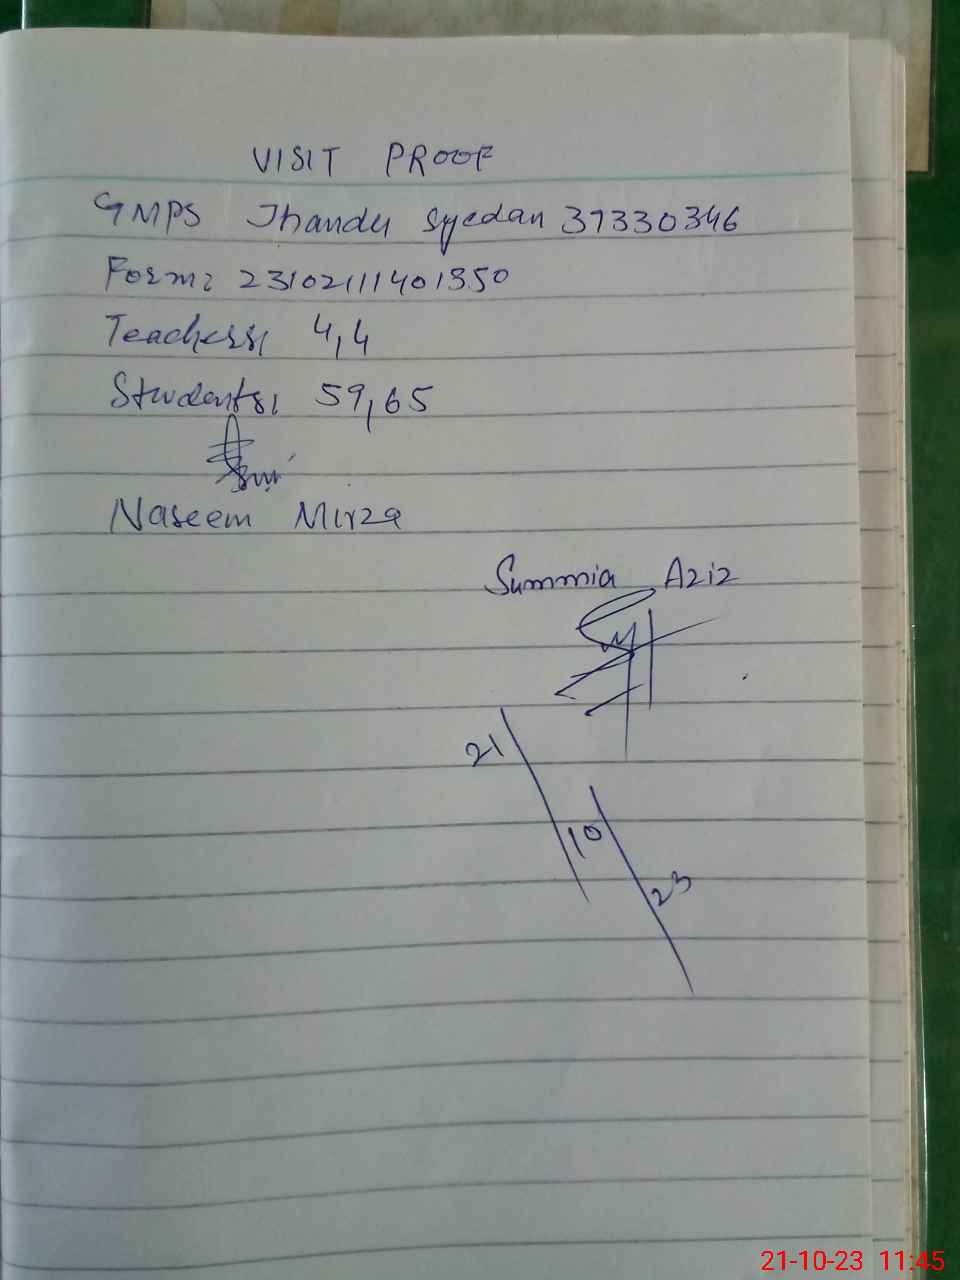 VISIT PROOF
GMPS Jhandu Syedan 37330346
Form: 23102111401350
Teachers: 4,4
Students: 59,65
Naseem Mirza
Summia Aziz
21/10/23
21-10-23 11:45